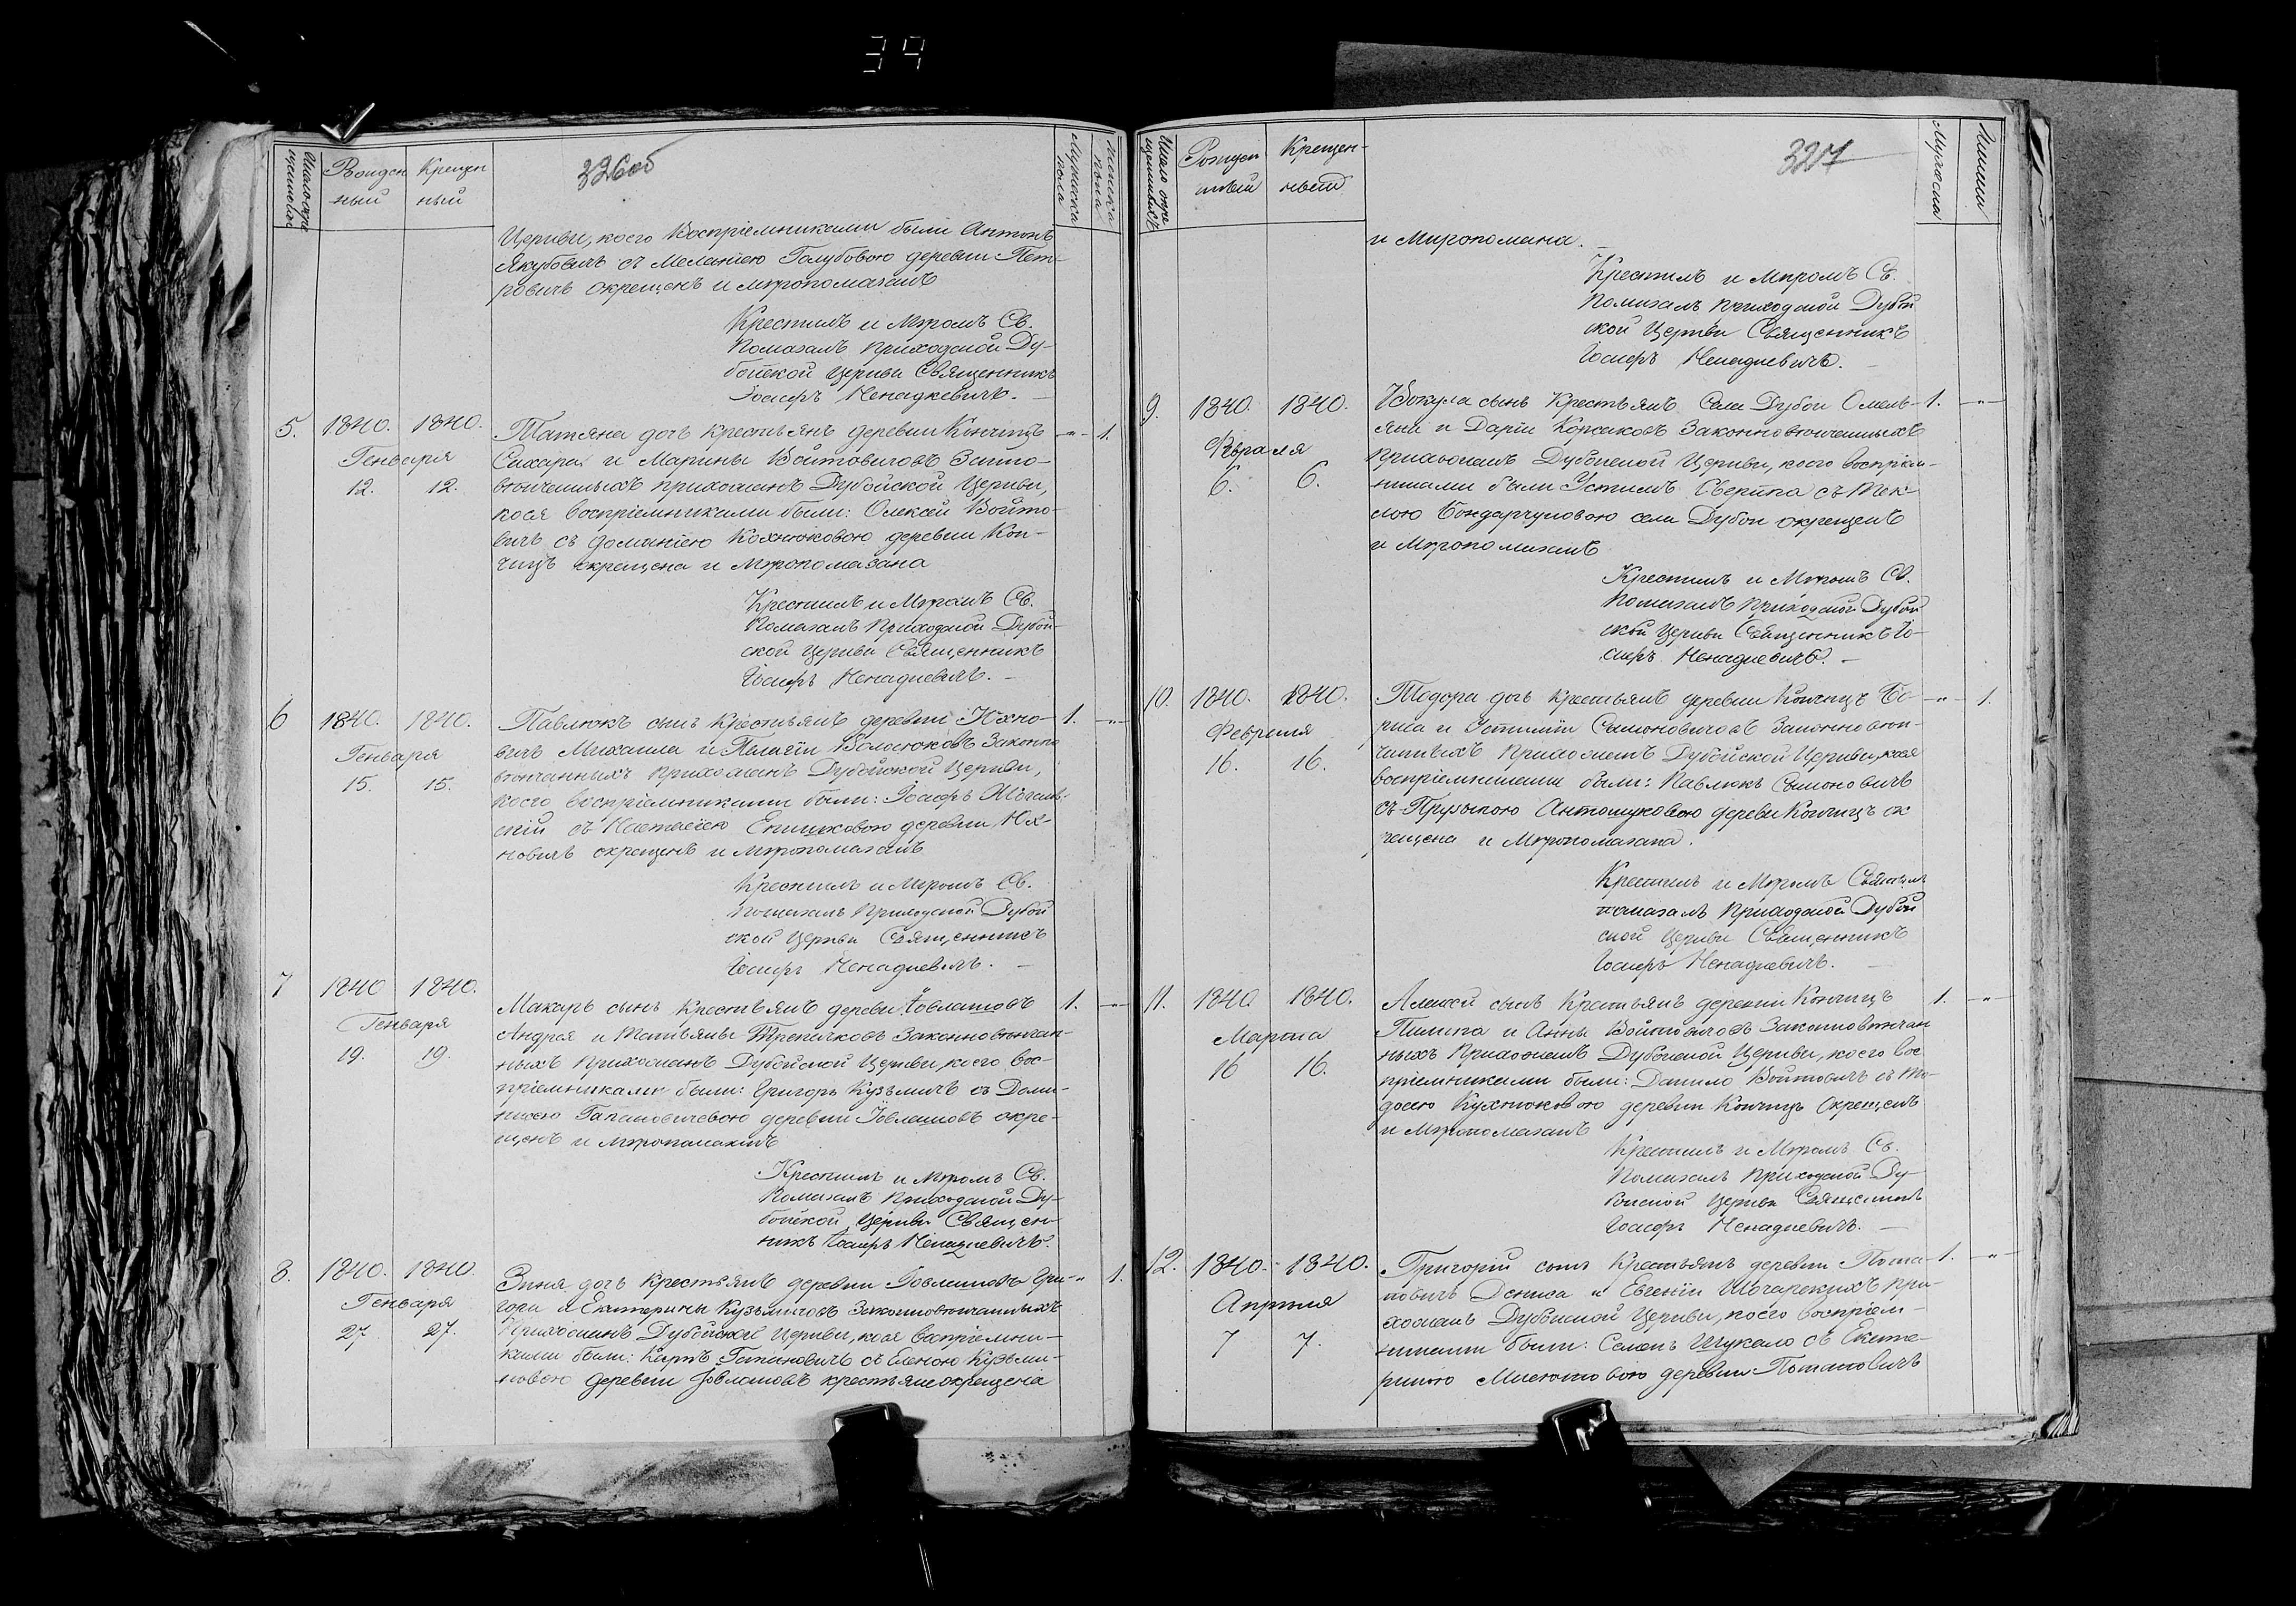 34
326об
Число окре
щенныхъ
Рожден
ный
Крещен
ный
Мужска
пола
Женска
пола
Церкви, коего Воспріемниками были Антонъ
Якубовичъ съ Меланіею Голубовою деревни Пет-
ровичъ окрещенъ и мѵропомазанъ
Крестилъ и Мѵромъ Св.
Помазалъ Приходской Ду-
бойской Церкви Священникъ
Іосифъ Ненадкевичъ.
5. 1840. 1840.
Генваря
12. 12.
Татяна дочь крестьянъ деревни Кончицъ -"- 1.
и Марины Войтовичовъ
вѣнчанныхъ прихожанъ Дубойской Церкви,
коея воспріемниками были: Олексѣй Войто-
вичъ съ Доминіею Кохнюковою деревни Кон-
чицъ окрещена и Мѵропомазана
Крестилъ и Мѵромъ Св.
Помазалъ Приходской Дубой-
ской Церкви Священникъ
Іосифъ Ненадкевичъ.
6 1840. 1840.
Генваря
15. 15.
Павлюкъ сынъ Крестьянъ деревни Юхно- 1. -"-
вичъ Михаила и Пелагіи Волосюковъ Законно
вѣнчанныхъ прихожанъ Дубойской Церкви,
коего воспріемниками были: Іосифъ
скій съ Настасіею деревни Юх-
новичъ окрещенъ и мѵропомазанъ
Крестилъ и Мѵромъ Св.
Помазалъ Приходской Дубой
ской Церкви Священникъ
Іосифъ Ненадкевичъ.
7 1840 1840.
Генваря
19. 19.
Макаръ сынъ Крестьянъ деревни Іовлашовъ 1. -"-
Андрея и Татьяны Трепяковъ Законновѣнчан-
ныхъ прихожанъ Дубойской Церкви, коего вос-
пріемниками были: Григорь Кузьмичъ съ Доми-
ніею Гапановичевою деревни Іовлашовъ окре-
щенъ и мѵропомазанъ
Крестилъ и Мѵромъ Св.
Помазалъ Приходской Ду-
бойской Церкви Священ-
никъ Іосифъ Ненадкевичъ.
8. 1840. 1840.
Генваря
27. 27.
Зиня дочь Крестьянъ деревни Іовлашовъ Гри- " 1.
гори и Екатерины Кузьмичовъ законновѣнчанныхъ
Прихожанъ Дубойской Церкви, коея воспріемни-
ками были: Карпъ Гапановичъ съ Еленою Кузьми-
човою деревни Іовлашовъ крестьяне окрещена
327
Число окре
щенныхъ
Рожден
ный
Крещен-
ный
Мужска
Женска
и Миропомана.
Крестилъ и Мѵромъ Св.
Помазалъ Приходской Дубой
ской Церкви Священникъ
Іосифъ Ненадкевичъ.
9. 1840. 1840.
Февраля
6. 6.
Вокула сынъ Крестьянъ Села Дубои Омель- 1. -"-
яна и Даріи Корсиковъ Законновѣнчанныхъ
Прихожанъ Дубойской Церкви, коего воспріем-
никами были Устимъ съ Тек-
лою Бондарчуковою села Дубои окрещенъ
и Мѵропомазанъ
Крестилъ и Мѵромъ Св.
Помазалъ Приходской Дубой
ской Церкви Священникъ Іо-
сифъ Ненадкевичъ.
10. 1840. 1840.
Февраля
16. 16.
Тодора дочь Крестьянъ деревни Кончицъ Бо- -"- 1.
риса и Устиміи Сымоновичовъ Законновѣн-
чанныхъ Прихожанъ Дубойской Церкви, коея
воспріемниками были: Павлюкъ Сымоновичъ
съ Прузыною Антошуковою деревни Кончицъ ок
рещена и Мѵропомазана.
Крестилъ и Мѵромъ Святымъ
помазалъ Приходской Дубой
ской Церкви Священникъ
Іосифъ Ненадкевичъ.
11. 1840 1840.
Марта
16 16.
Алексѣй сынъ Крестьянъ деревни Кончицъ 1. -"-
Пилипа и Анны Войтовичовъ Законновѣнчан
ныхъ Прихожанъ Дубойской Церкви, коего вос
пріемниками были: Данило Войтовичъ съ То-
досею Кухнюковою деревни Кончицъ Окрещенъ
и Мѵропомазанъ
Крестилъ и Мѵромъ Св.
Помазалъ Приходской Ду
бойской Церкви Священникъ
Іосифъ Ненадкевичъ.
12. 1840. 1840.
Апрѣля
7 7.
Григорій сынъ Крестьянъ деревни Пота- 1. -"-
повичъ Дениса и Евгеніи при-
хожанъ Дубойской Церкви, коего воспріем-
никами были: Семенъ Шукало съ Екате-
риною деревни Потаповичъ